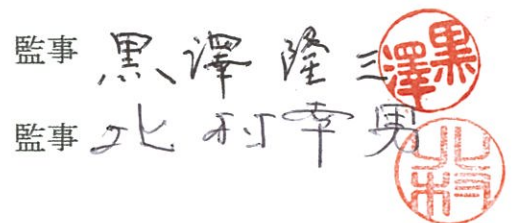 監事 黒澤隆三 黒澤
監事 北村幸男 北村